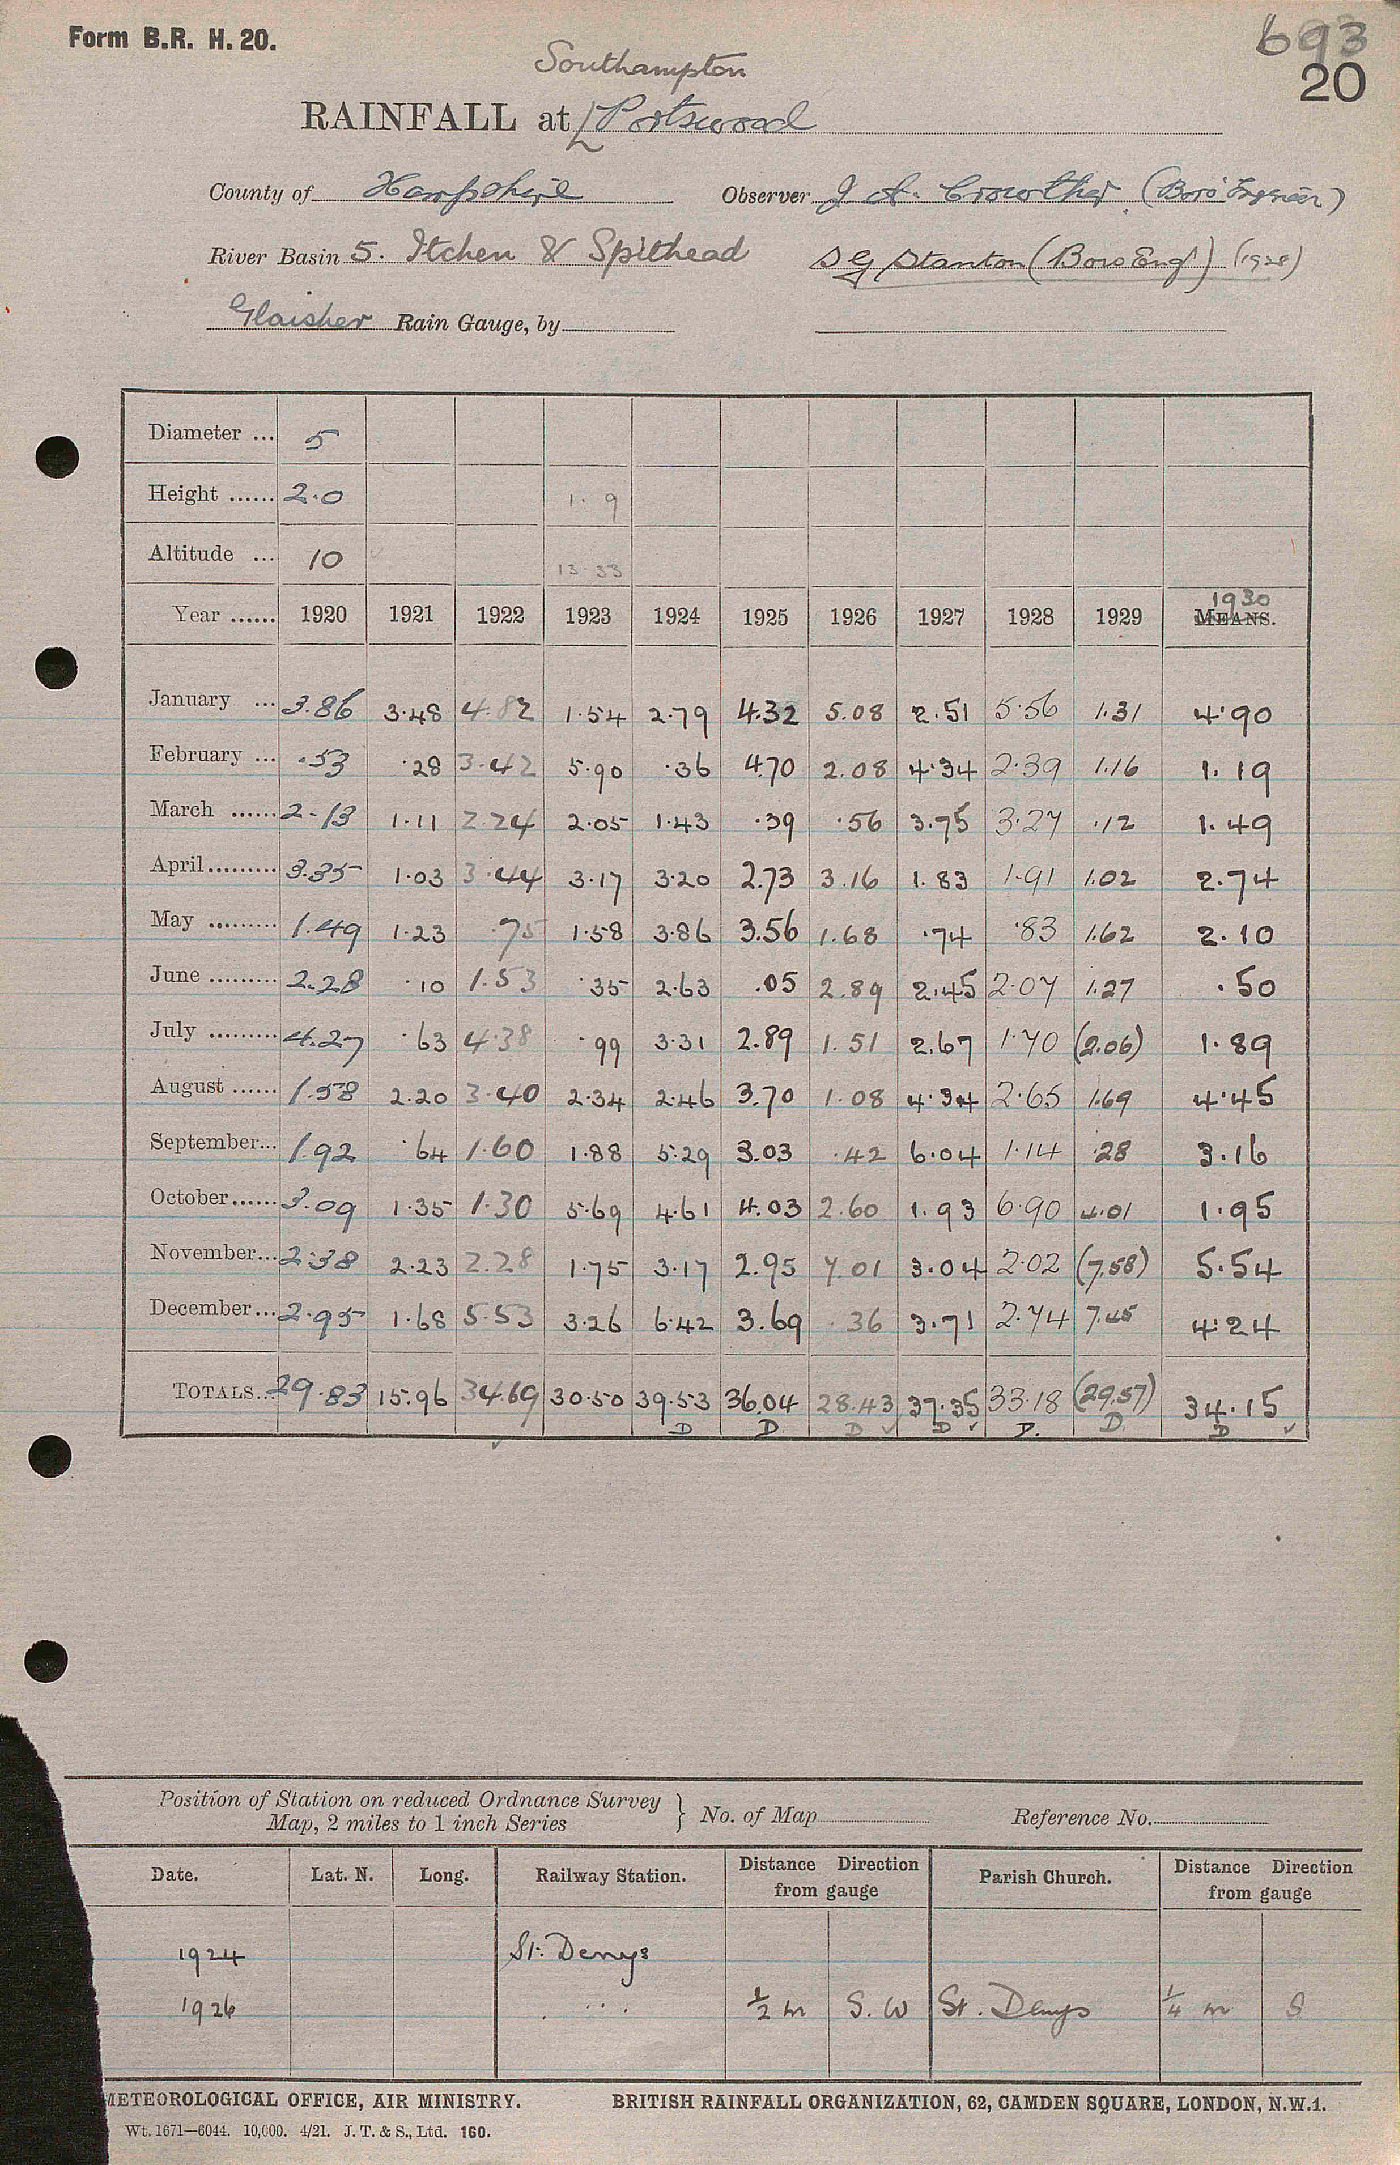 Form B.R. H. 20.
693
20
Southampton
RAINFALL at Portswood
County of Hampshire Observer J A. Crowther (Boro' Engineer)
River Basin 5. Itchen & Spithead S G Stanton (Boro Eng') (1928)
Glaisher Rain Gauge, by
Diameter ... 5
Height ...... 2.0 1.9
Altitude ... 10 13.33
Year ...... 1920 1921 1922 1923 1924 1925 1926 1927 1928 1929 1930 MEANS.
January ... 3.86 3.48 4.82 1.54 2.79 4.32 5.08 2.51 5.56 1.31 4.90
February ... .53 .28 3.42 5.90 .36 4.70 2.08 4.34 2.39 1.16 1.19
March ...... 2.13 1.11 2.24 2.05 1.43 .39 .56 3.75 3.27 .12 1.49
April ......... 3.35 1.03 3.44 3.17 3.20 2.73 3.16 1.83 1.91 1.02 2.74
May ......... 1.49 1.23 .75 1.58 3.86 3.56 1.68 .74 .83 1.62 2.10
June ......... 2.28 .10 1.53 .35 2.63 .05 2.89 2.45 2.07 1.27 .50
July ......... 4.27 .63 4.38 .99 3.31 2.89 1.51 2.67 1.70 (2.06) 1.89
August ...... 1.58 2.20 3.40 2.34 2.46 3.70 1.08 4.34 2.65 1.69 4.45
September... 1.92 .64 1.60 1.88 5.29 3.03 .42 6.04 1.14 .28 3.16
October...... 3.09 1.35 1.30 5.69 4.61 4.03 2.60 1.93 6.90 4.01 1.95
November... 2.38 2.23 2.28 1.75 3.17 2.95 7.01 3.04 2.02 (7.58) 5.54
December... 2.95 1.68 5.53 3.26 6.42 3.69 .36 3.71 2.74 7.45 4.24
TOTALS... 29.83 15.96 34.69 30.50 39.53 36.04 28.43 37.35 33.18 (29.57) 34.15
D D D D D. D. D
Position of Station on reduced Ordnance Survey
Map, 2 miles to 1 inch Series } No. of Map Reference No.
Date. Lat. N. Long. Railway Station. Distance Direction from gauge Parish Church. Distance Direction from gauge
1924 St. Denys
1926 . ... 1/2 m S. W St. Denys 1/4 m S
METEOROLOGICAL OFFICE, AIR MINISTRY. BRITISH RAINFALL ORGANIZATION, 62, CAMDEN SQUARE, LONDON, N.W.1.
Wt. 1671—6044. 10,000. 4/21. J. T. & S., Ltd. 160.